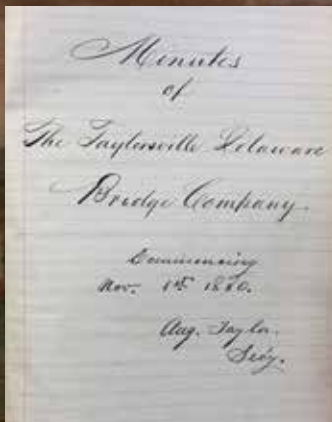 Minutes
of
The Taylorsville Delaware
Bridge Company.
Commencing
Nov. 1st
Aug. Taylor.
Secy.